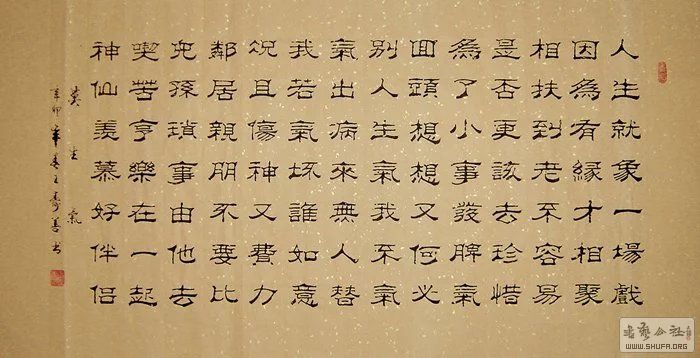 人生就象一場戲
因為有緣才相聚
相扶到老不容易
是否更該去珍惜
為了小事發脾氣
回頭想想又何必
別人生氣我不氣
氣出病來無人替
我若氣坏誰如意
况且傷神又費力
鄰居親朋不要比
兒孫瑣事由他去
喫苦亨樂在一起
神仙羨慕好伴侶
莫生氣
辛卯年春王壽善书
WWW.SHUFA.ORG